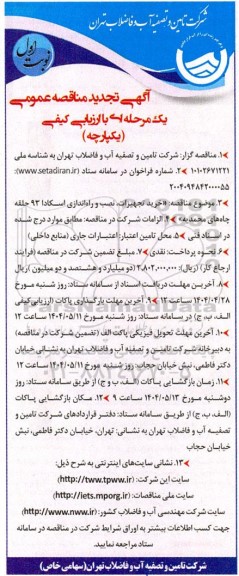 شرکت تامین و تصفیه آب و فاضلاب تهران
نوبت اول
آگهی تجدید مناقصه عمومی
یک مرحله ای با ارزیابی کیفی
(یکپارچه)
۱. مناقصه گزار: شرکت تامین و تصفیه آب و فاضلاب تهران به شناسه ملی
۱۰۱۰۲۶۷۱۲۲۱ ۲. شماره فراخوان در سامانه ستاد (www.setadiran.ir):
۲۰۰۴۰۹۴۸۴۲۰۰۰۰۵۵
۳. موضوع مناقصه: «خرید تجهیزات، نصب و راه‌اندازی اسکادا ۹۳ حلقه
چاه‌های محمدیه» ۴. الزامات شرکت در مناقصه: مطابق موارد درج شده
در اسناد فنی ۵. محل تامین اعتبار: اعتبارات جاری (منابع داخلی)
۶. نحوه پرداخت: نقدی ۷. مبلغ تضمین شرکت در مناقصه (فرآیند
ارجاع کار) (ریال): ۲،۸۰۲،۰۰۰،۰۰۰ (دو میلیارد و هشتصد و دو میلیون) ریال
۸. آخرین مهلت دریافت اسناد از سامانه ستاد: روز شنبه مورخ
۱۴۰۴/۰۴/۲۸ ساعت ۱۲ ۹. آخرین مهلت بارگذاری پاکات (ارزیابی کیفی
الف، ب، ج) در سامانه ستاد: روز شنبه مورخ ۱۴۰۴/۰۵/۱۱ ساعت ۱۲
۱۰. آخرین مهلت تحویل فیزیکی پاکت الف (تضمین شرکت در مناقصه)
به دبیرخانه شرکت تامین و تصفیه آب و فاضلاب تهران به نشانی خیابان
دکتر فاطمی، نبش خیابان حجاب: روز شنبه مورخ ۱۴۰۴/۰۵/۱۱ ساعت ۱۲
۱۱. زمان بازگشایی پاکات (الف، ب و ج) از طریق سامانه ستاد: روز
دوشنبه مورخ ۱۴۰۴/۰۵/۱۳ ساعت ۹ ۱۲. مکان بازگشایی پاکات
(الف، ب، ج) از طریق سامانه ستاد: دفتر قراردادهای شرکت تامین و
تصفیه آب و فاضلاب تهران به نشانی: تهران، خیابان دکتر فاطمی، نبش
خیابان حجاب
۱۳. نشانی سایت‌های اینترنتی به شرح ذیل:
سایت این شرکت: (http://tww.tpww.ir)
سایت ملی مناقصات: (http://iets.mporg.ir)
سایت شرکت مهندسی آب و فاضلاب کشور: (http://www.nww.ir)
جهت کسب اطلاعات بیشتر به اوراق شرایط شرکت در مناقصه در سامانه
ستاد مراجعه نمایید.
شرکت تامین و تصفیه آب و فاضلاب تهران (سهامی خاص)